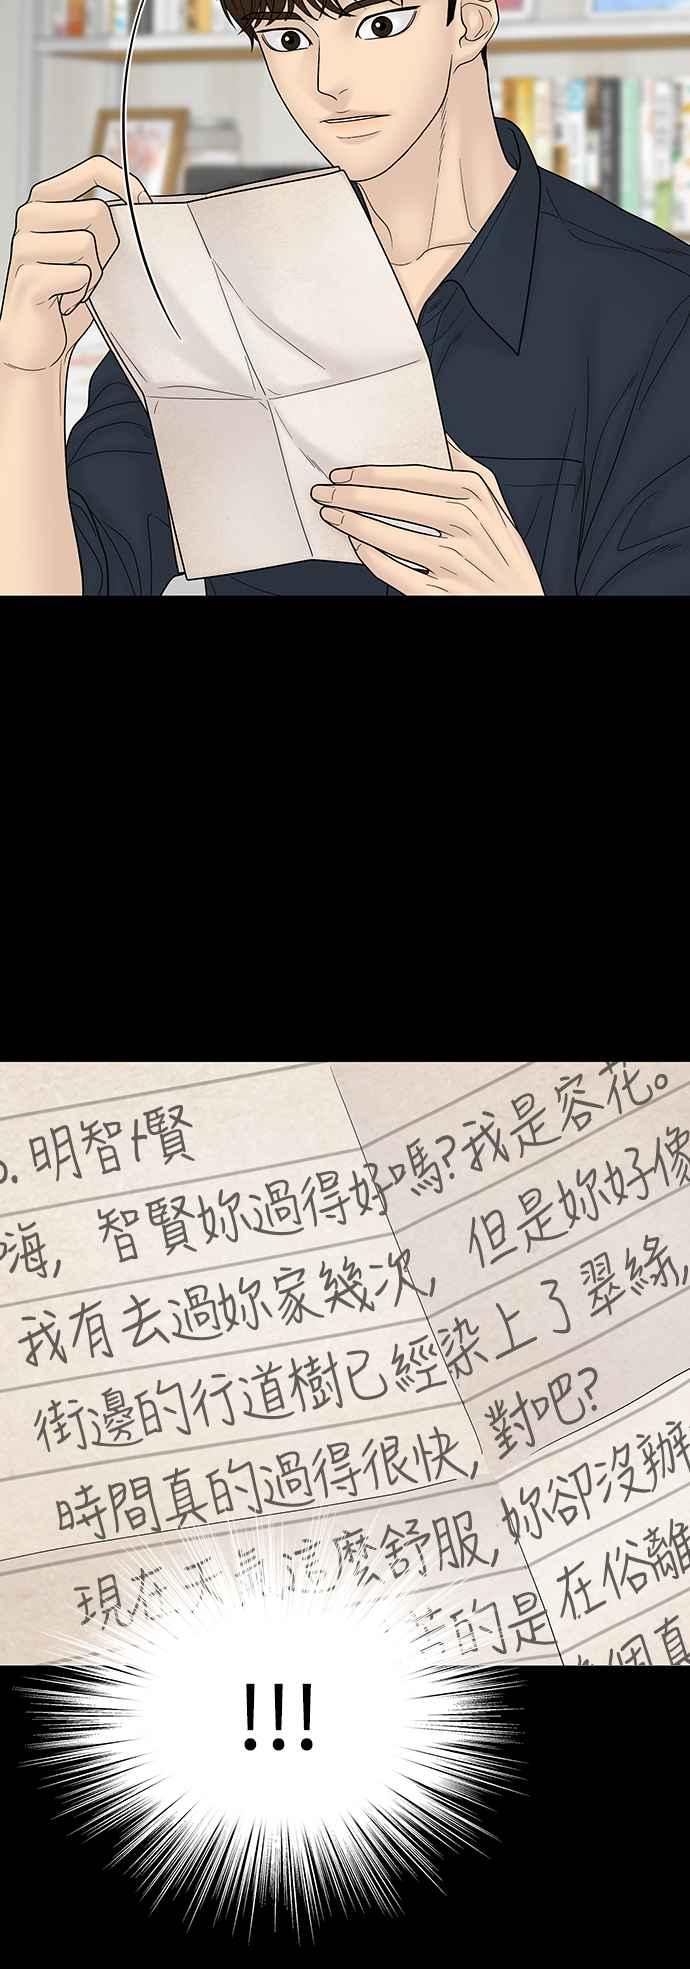 o. 明智卜賢
嗨, 智賢妳過得好嗎?我是容花。
我有去過妳家幾次, 但是妳好像
街邊的行道樹已經染上了翠綠,
時間真的過得很快, 對吧?
現在天氣這麼舒服, 妳卻沒辦
的是在俗離
個真
!!!